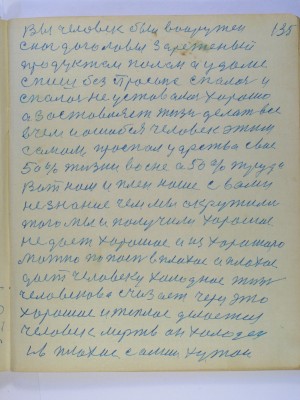 135
Вы человек был вооружен
с ног до головы заряженый
продуктом полон а удали
спиш без просопа спалоя и
спалоя не уставалоя хорошо
а заставляет жизь делат все
в чем и ошибся человек этим
самым проспал царства свае
50% жизни во сне а 50% труда
Вот нам и плен наше с вами
незнание чем мы окружили
того мы и получили хорошае
не дает хорошае и из харошаго
можно попаст в плохае и плохае
дает человеку холодное
человекова счизает через это
хорошае и теплае делается
человек мертв он холодея
и в плохае самим худом